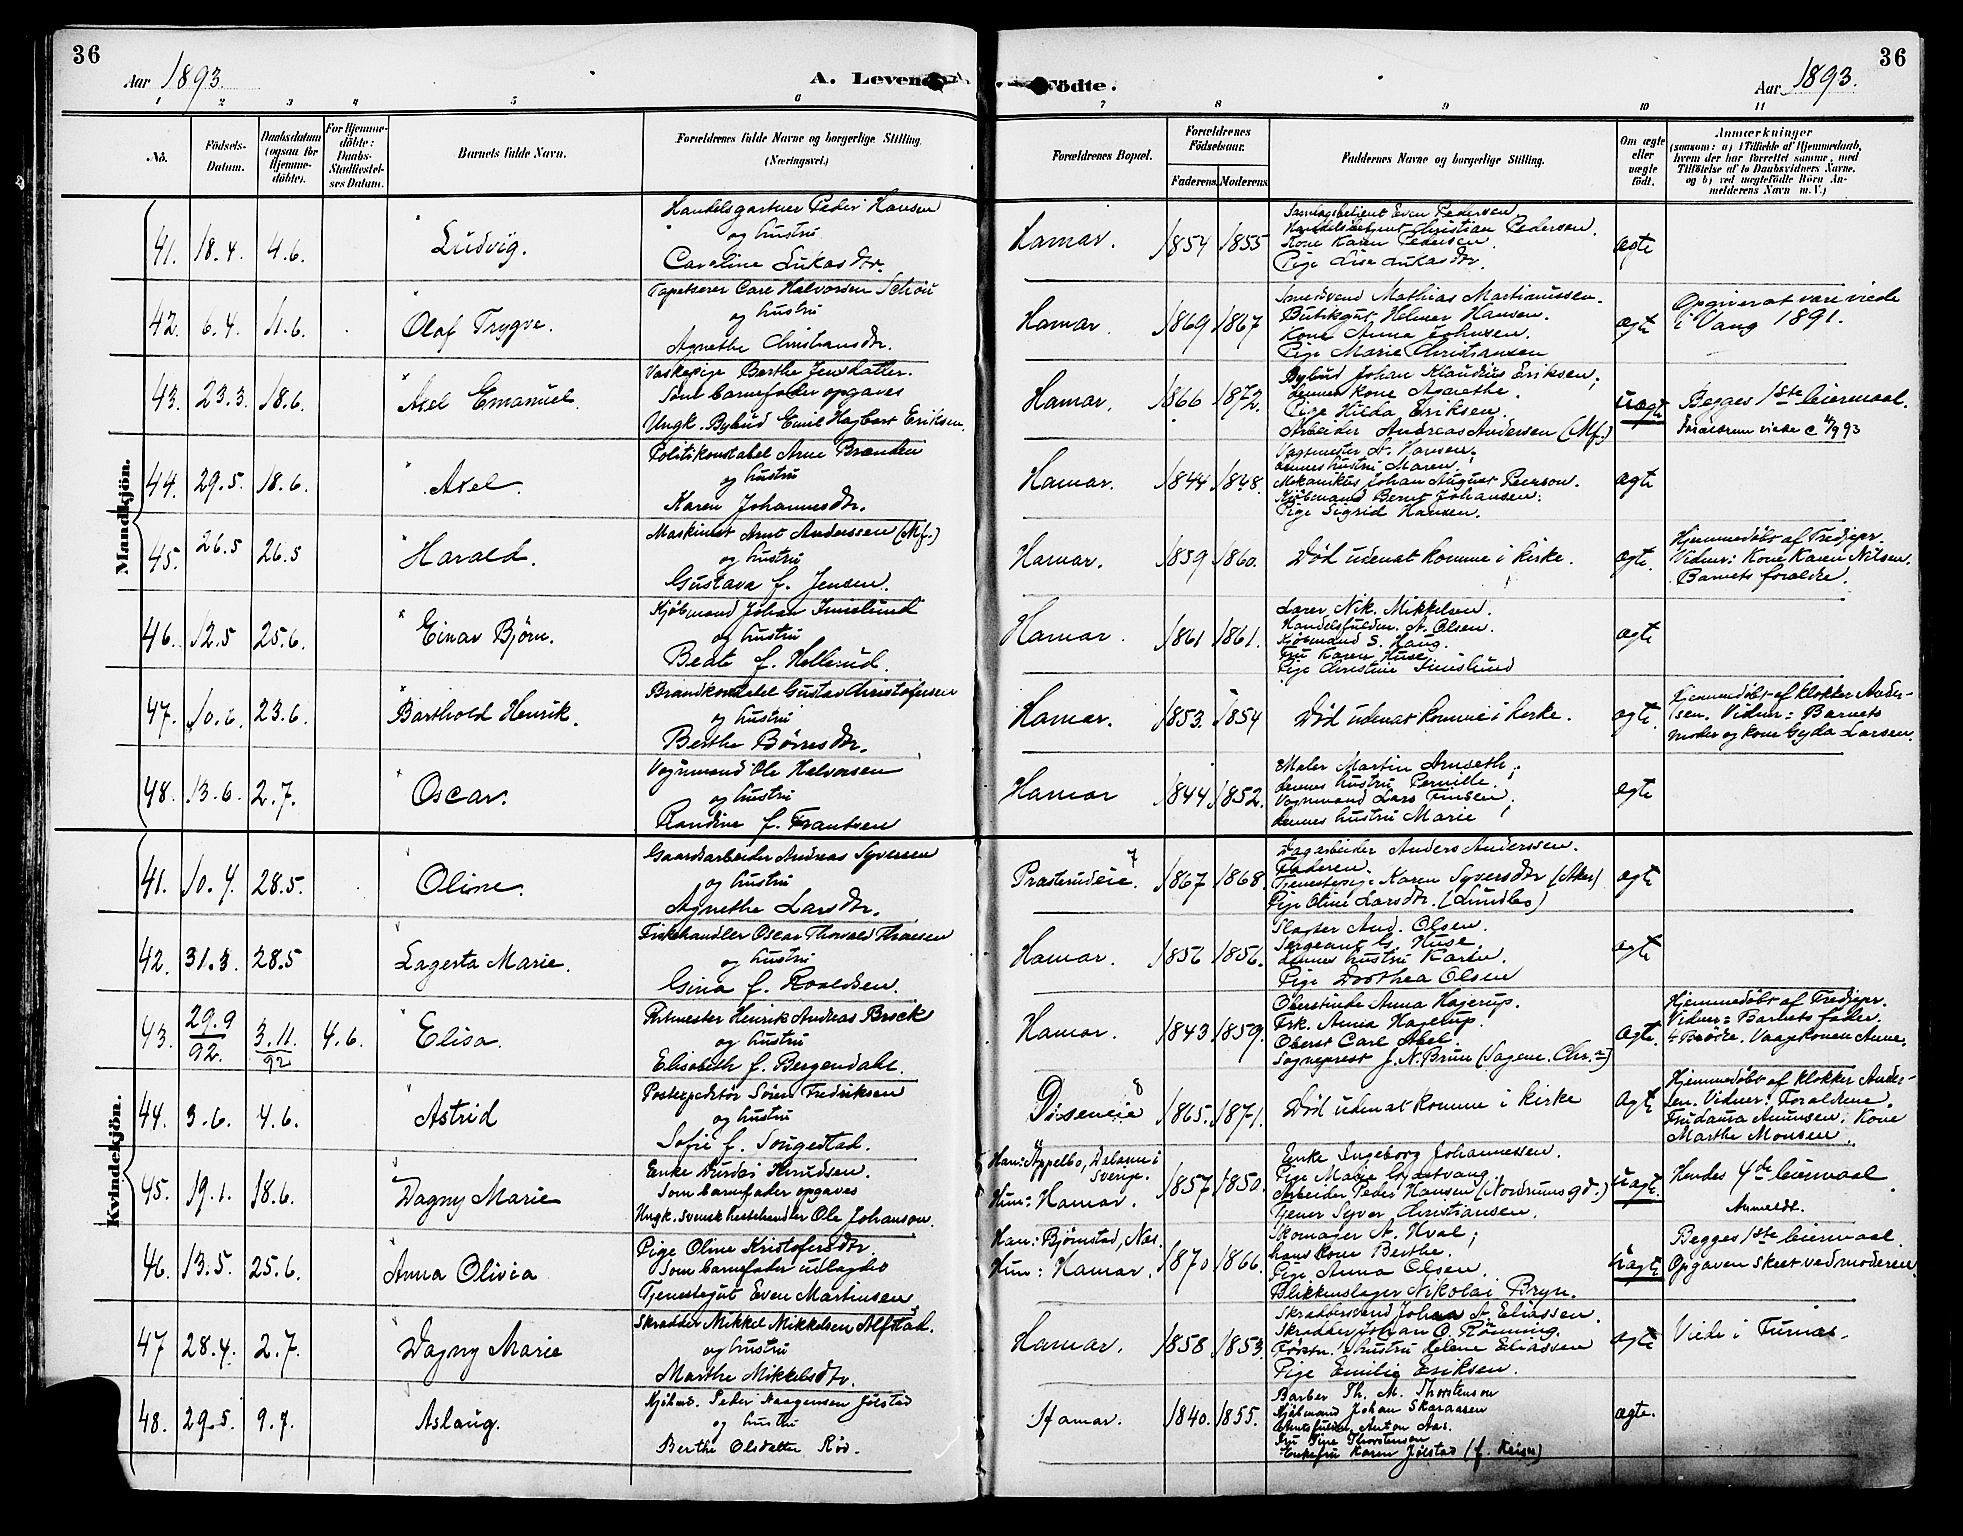 36
Aar 1893.
A. Levende Fødte.
Aar 1893.
36
1 2 3 4 5 6 7 8 9 10 11
No.
Fødsels-Datum.
Daabsdatum (ogsaa for Hjemme-døbte).
For Hjemme-døbte: Daabs-Stadfæstel-ses Datum.
Barnets fulde Navn.
Forældrenes fulde Navne og borgerlige Stilling. (Næringsvei.)
Forældrenes Bopæl.
Forældrenes Fødselsaar.
Faderens. Moderens.
Faddernes Navne og borgerlige Stilling.
Om ægte eller uægte født.
Anmærkninger
(saasom: a) i Tilfælde af Hjemmedaab,
hvem der har forrettet samme, med
Tilføielse af to Daabsvidners Navne,
og b) ved uægtefødte Børn An-
melderens Navn m. V.)
Mandkjön.
41. 18.4. 4.6. Ludvig.
Handelsgartner Peder Hansen
og hustru
Caroline Lukasdtr.
Hamar. 1854 1855
Samlagsbetjent Even Pedersen
Handelsbetjent Christian Pedersen.
Kone Karen Pedersen.
Pige Lise Lukasdtr.
ægte
42. 6.4. 11.6. Olaf Trygve.
Tapetserer Carl Halvorsen Schou
og hustru
Agnethe Christiansdtr.
Hamar. 1869 1867
Smedsvend Mathias Martinussen.
Butikgut Helmer Hansen.
Kone Anna Johnsen.
Pige Marie Christiansen
ægte
Opgiver at være viede
i Vang 1891.
43. 23.3. 18.6. Axel Emanuel.
Vaskepige Berthe Jensdatter.
Som barnefader opgaves
Ungk. Bybud Emil Hagbart Eriksen.
Hamar. 1866 1872.
Bybud Johan Klaudius Eriksen;
dennes kone Agnethe.
Pige Hilda Eriksen.
Arbeider Andreas Andersen (Mf.)
uægte
Begges 1ste leiermaal.
Forældrene viede 4/9 93
44. 29.5. 18.6. Axel.
Politikonstabel Arne Brænden
og hustru
Karen Johannesdtr.
Hamar. 1844 1848.
Vagtmester A. Hansen;
dennes hustru Maren;
Mekanikus Johan August Peerson.
Kjöbmand Bernt Johansen;
Pige Sigrid Hansen.
ægte
45. 26.5 26.5 Harald.
Maskinist Arnt Anderssen (Mf.)
og hustru
Gustava f. Jensen.
Hamar. 1859 1860.
Död uden at komme i kirke.
ægte.
Hjemmedöbt af Fredjepr.
Vidner: Kone Karen Nilsen.
Barnets forældre.
46. 12.5 25.6. Einar Björn.
Kjöbmand Johan Imislund
og hustru
Beate f. Hellerud.
Hamar. 1861 1861.
Lærer Nik. Mikkelsen.
Handelsfuldm. A. Olsen.
Kjøbmand S. Haug.
Fru Karen Huse.
Pige Christine Imislund
ægte
47. 10.6. 23.6. Barthold Henrik.
Brandkonstabel Gustav Christofersen
og hustru
Berthe Börresdtr.
Hamar. 1853. 1854
Död uden at komme i kirke.
ægte.
Hjemmedöbt af klokker Ander-
sen. Vidner: Barnets
moder og kone Gyda Larsen.
48. 13.6. 2.7. Oscar.
Vognmand Ole Halvorsen
og hustru
Randine f. Frantsen
Hamar 1844 1852.
Maler Martin Arneseth;
dennes hustru Pernille;
Vognmand Lars Finsen;
dennes hustru Marie;
ægte
Kvindekjön.
41. 10.4. 28.5. Oline.
Gaardsarbeider Andreas Syversen
og hustru
Agnethe Larsdtr.
Præsterudeie. 7 1867 1868.
Dagarbeider Anders Anderssen.
Faderen.
Tjenestepige Karen Syversdtr (Aker)
Pige Oline Larsdtr. (Lundbo)
ægte
42. 31.3. 28.5 Lagerta Marie.
Fiskehandler Oscar Thorvald Thoresen
og hustru
Gina f. Roaldsen.
Hamar. 1856 1856.
Slagter And. Olsen.
Sergeant G. Huse.
dennes hustru Karen.
Pige Dorthea Olsen
ægte
43. 29.9 92. 3.11. 92 4.6. Elisa.
Ritmester Henrik Andreas Brock
og hustru
Elisabeth f. Bergendahl.
Hamar. 1843 1859.
Oberstinde Anna Hagerup.
Frk. Anna Hagerup.
Oberst Carl Abel.
Sogneprest J. N. Bruun (Sagene. Chr.)
ægte.
Hjemmedöbt af Fredjepr.
Vidner: Barnets fader.
44. 3.6. 4.6. Astrid
Postexpeditör Sören Fredriksen
og hustru
Sofie f. Songestad.
Disseneie 8 1865. 1871.
Död uden at komme i kirke
ægte
Hjemmedöbt af klokker Ander-
sen. Vidner: Forældrene.
Kone
Marthe Monsen.
45. 19.1. 18.6. Dagny Marie
Enke Durdei Knudsen.
Som barnefader opgaves
Ungk. svensk hestehandler Ole Johanson.
Han: Äppelbo, Dalarne i Sverige.
Hun: Hamar. 1857 1850.
Enke Ingeborg Johannessen.
Arbeider Peder Hansen (Nordrumsgd.)
Tjener Syver Christiansen.
uægte.
Hendes 4de leiermaal.
Anmeldt.
46. 13.5. 25.6. Anna Olivia
Pige Oline Kristofersdtr.
Som barnefader udlagdes
Tjenestegut Even Martinsen
Han: Bjørnstad, Næs.
Hun: Hamar. 1870 1866.
Skomager A. Hval;
hans kone Berthe.
Pige Anna Olsen.
Blikkenslager Nikolai Bryn.
uægte
Begges 1ste leiermaal.
Opgaven skeet ved moderen.
47 28.4. 2.7. Dagny Marie
Skrædder Mikkel Mikkelsen Alfstad.
og hustru
Marthe Mikkelsdtr.
Hamar. 1858 1853.
Skræddersvend Johan A. Eliassen.
Skrædder Johan O. Rönning.
Förstn. hustru Helene Eliassen
Pige Emilie Eriksen.
ægte
Viede i Furnæs.
48. 29.5. 9.7. Aslaug.
Kjöbmd. Peder Haagensen Jölstad
og hustru
Berthe Olsdatter Röd.
Hamar. 1840. 1855.
Barber Th. M. Thorstenson
Kjöbmand Johan Skaraasen
Amtsfuldm. Anton Aas.
Fru Tine Thorstenson
Enkefru Karen Jölstad (f. Keisn)
ægte.